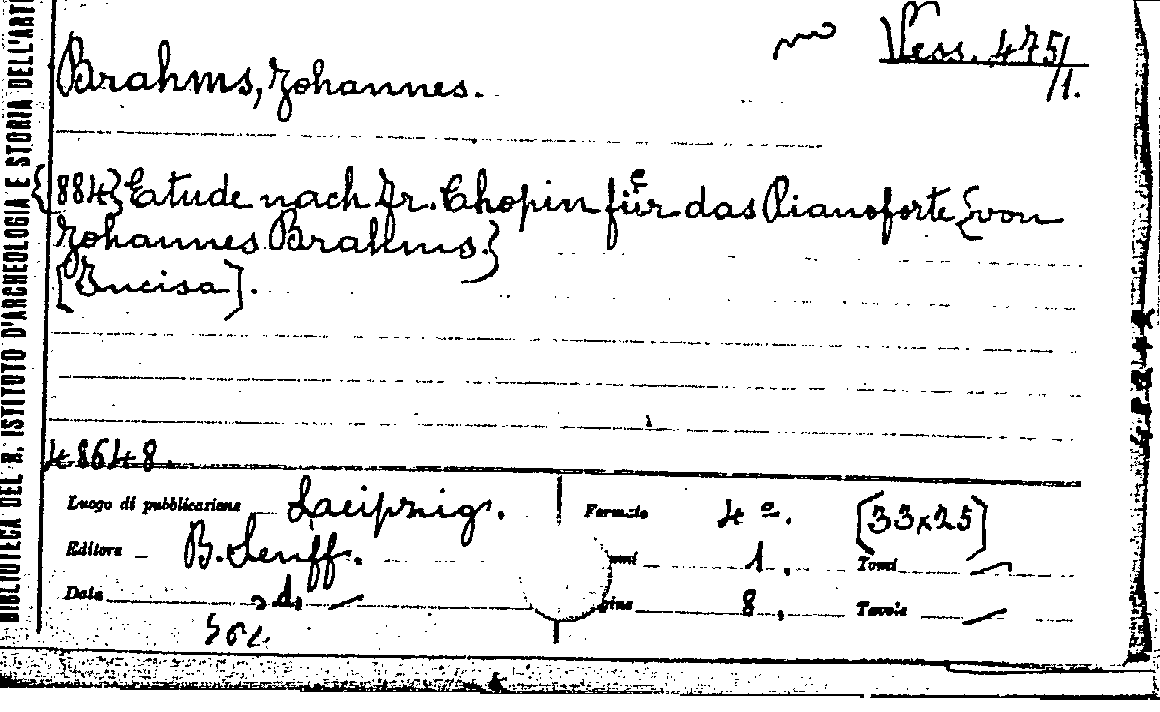 BIBLIOTECA DEL R. ISTITUTO D'ARCHEOLOGIA E STORIA DELL'ARTE
Vess. 475/
/1.
Brahms, Johannes.
{884} Etude nach Fr. Chopin für das Pianoforte {von
Johannes Brahms.}
[Incisa].
48648.
Luogo di pubblicazione Laeipzig. Formato 4º. [33x25]
Editore B. Senff. umi 1. Tomi —
Data s.d. — gine 8. Tavole —